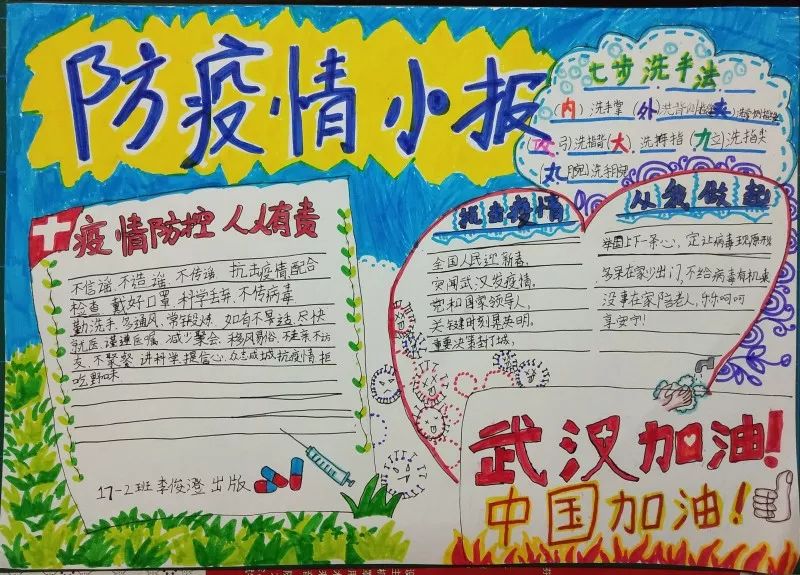 防疫情小报
七步洗手法
(内)洗手掌 (外)洗背侧指缝 (夹)洗掌侧指缝
(弓)洗指背 (大)洗拇指 (立)洗指尖
(腕)洗手腕
疫情防控 人人有责
不信谣、不造谣、不传谣 抗击疫情配合
检查 戴好口罩 科学丢弃、不传病毒
勤洗手、多通风、常锻炼、如有不适、尽快
就医、谨遵医嘱 减少聚会、移风易俗、不走亲不访
友、不聚餐 讲科学、提信心、众志成城抗疫情 拒
吃野味
17-2班 李俊澄 出版
抗击疫情
全国人民迎新春,
突闻武汉发疫情。
党和国家领导人,
关键时刻显英明。
重要决策封了城,
从我做起
举国上下一条心,定让病毒现原形
多呆在家少出门,不给病毒有机乘
没事在家陪老人,乐呵呵
享安宁!
武汉加油!
中国加油!